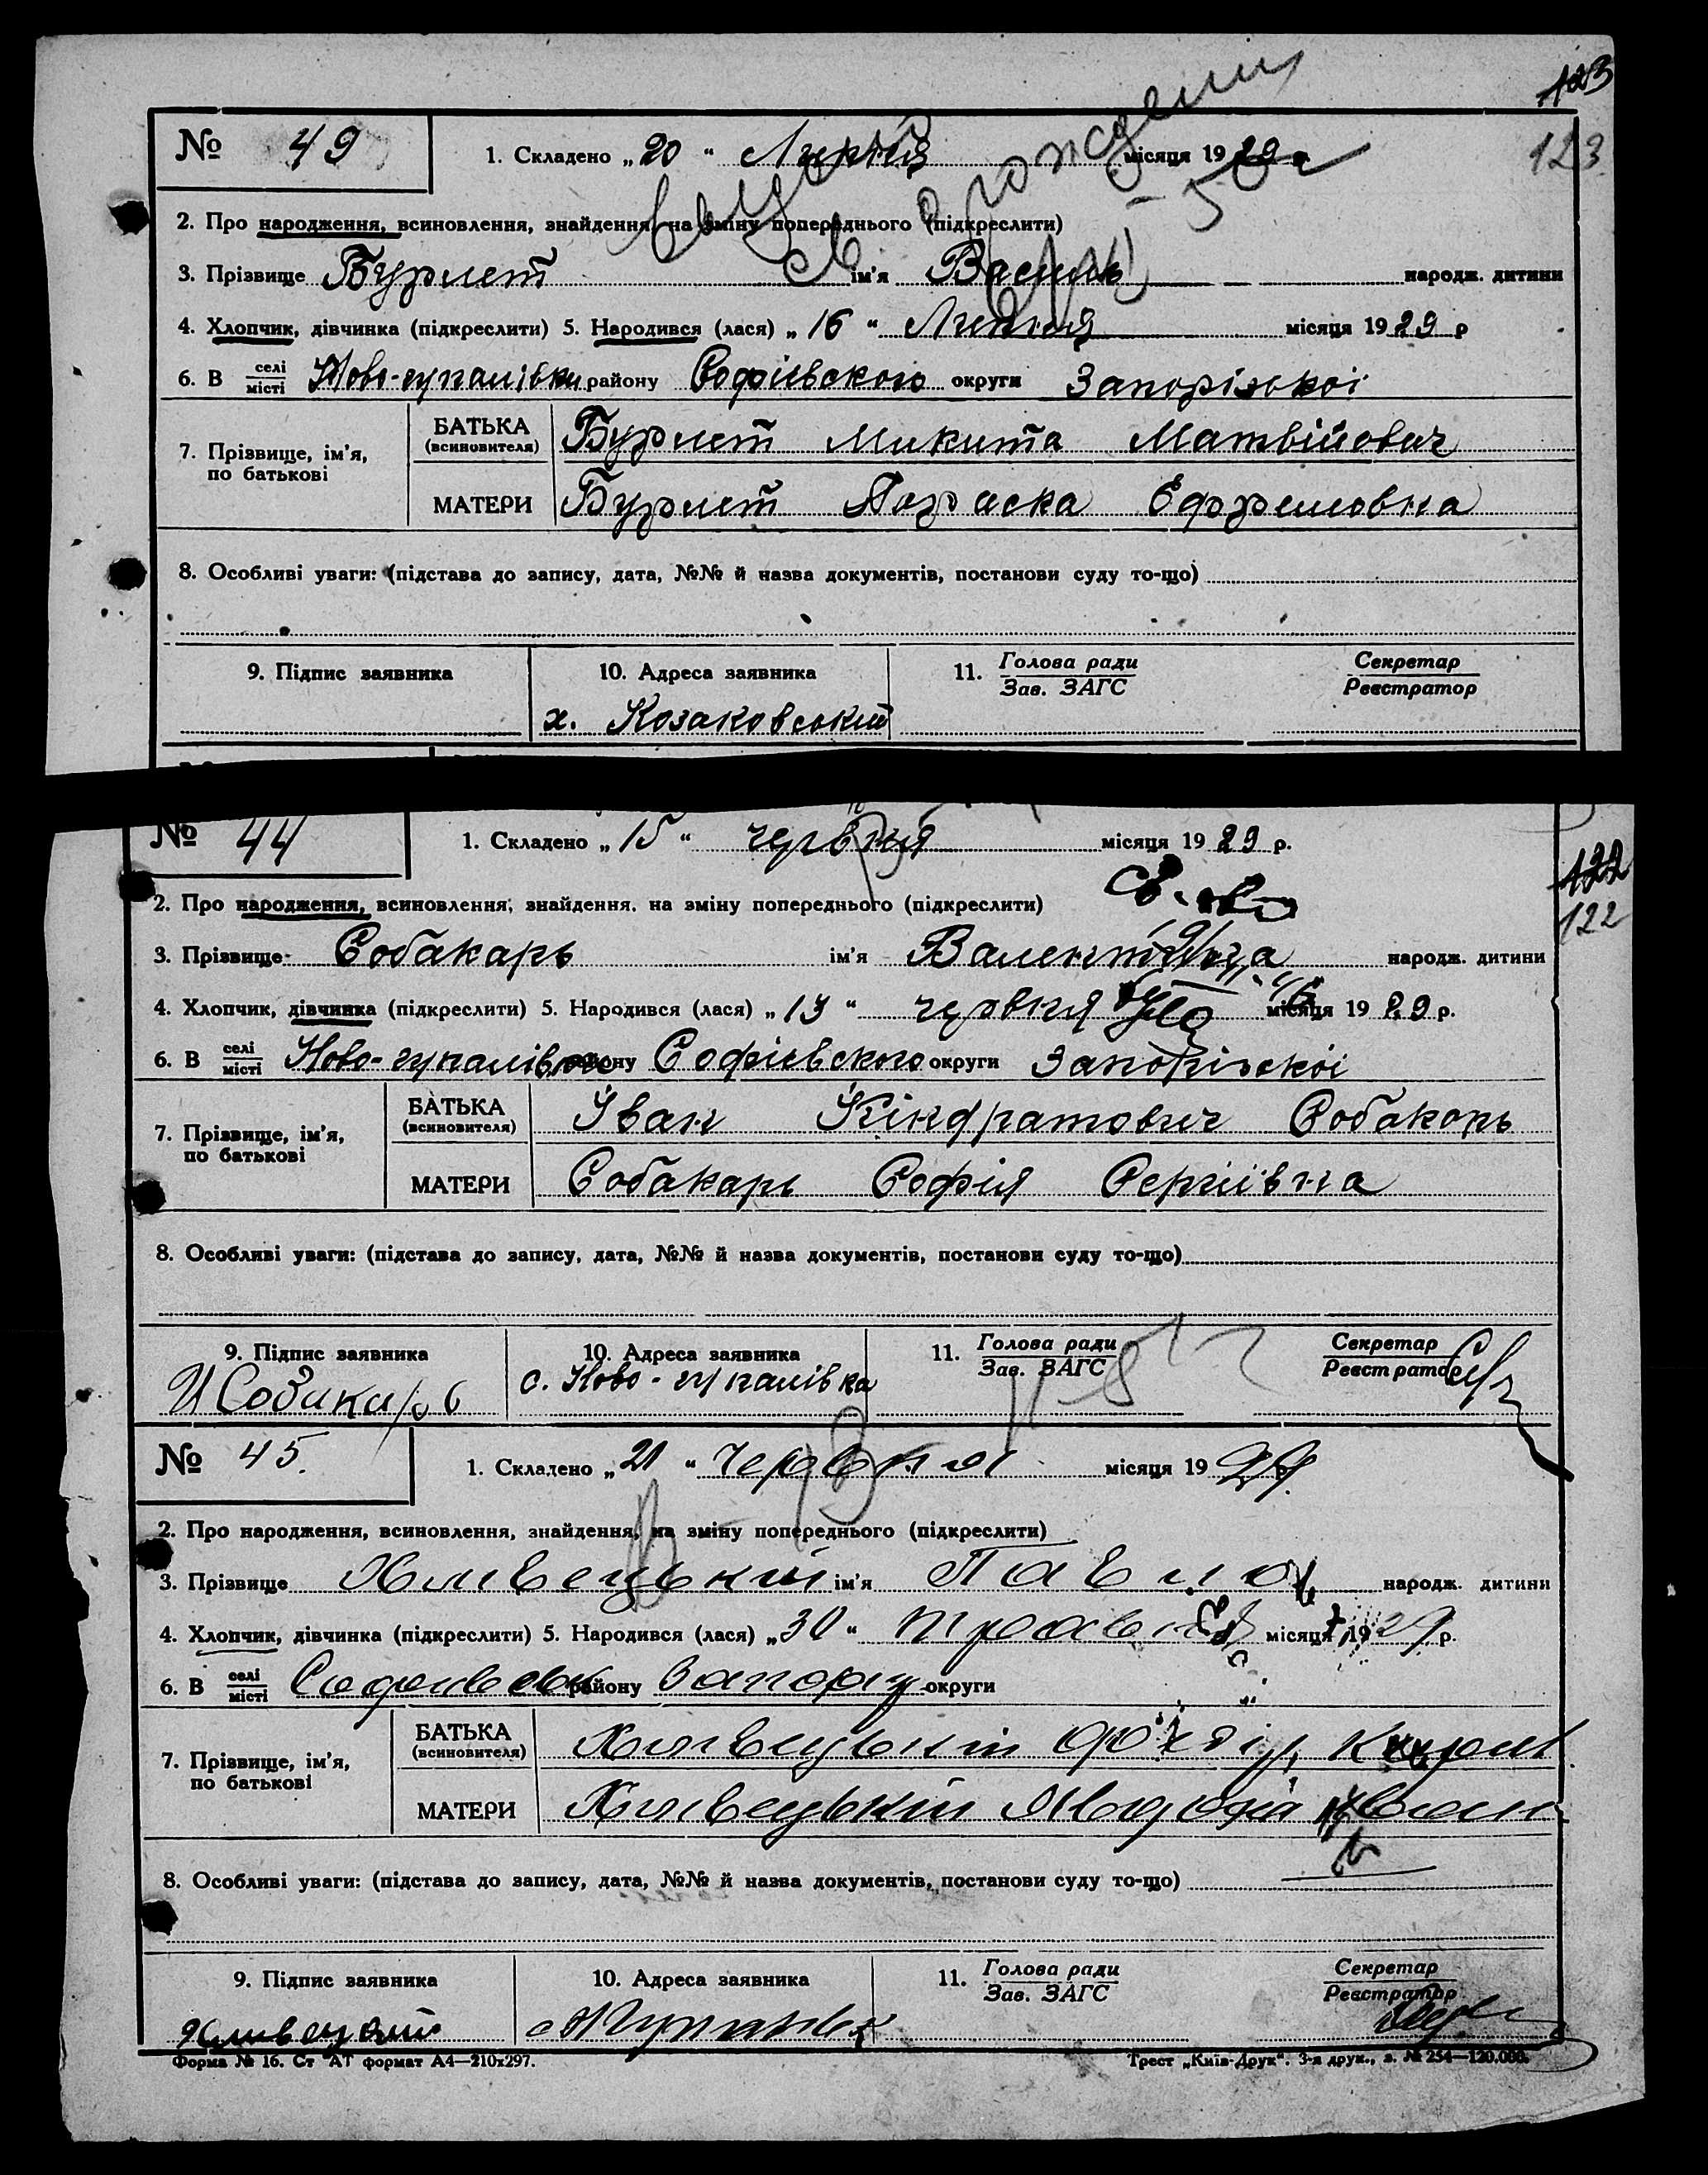 123
123
№ 49
1. Складено „20“ Липня місяця 1929 р
2. Про народження, всиновлення, знайдення, на зміну попереднього (підкреслити)
3. Прізвище Бурлет ім'я Василь народж. дитини
4. Хлопчик, дівчинка (підкреслити) 5. Народився (лася) „16“ Липня місяця 1929 р
6. В селі/місті Ново-гупалівки району Софіевского округи Запорізькоі
7. Прізвище, ім'я, по батькові
БАТЬКА (всиновителя) Бурлет Микита Матвійович
МАТЕРИ Бурлет Параска Ефремовна
8. Особливі уваги: (підстава до запису, дата, №№ й назва документів, постанови суду то-що)
9. Підпис заявника
10. Адреса заявника
11. Голова ради/Зав. ЗАГС
Секретар/Реєстратор
х. Козаковський
№ 44
1. Складено „15“ червня місяця 1929 р.
122
122
2. Про народження, всиновлення, знайдення, на зміну попереднього (підкреслити)
3. Прізвище Собакарь ім'я Валентина народж. дитини
4. Хлопчик, дівчинка (підкреслити) 5. Народився (лася) „13“ червня місяця 1929 р.
6. В селі/місті Ново-гупалівки району Софіевского округи Запорізькоі
7. Прізвище, ім'я, по батькові
БАТЬКА (всиновителя) Іван Кіндратович Собакарь
МАТЕРИ Собакарь Софія Сергіївна
8. Особливі уваги: (підстава до запису, дата, №№ й назва документів, постанови суду то-що)
9. Підпис заявника
10. Адреса заявника
11. Голова ради/Зав. ЗАГС
Секретар/Реєстратор
И Собакарь
с. Ново-гупалівка
№ 45.
1. Складено „21“ Червня місяця 1929 р.
2. Про народження, всиновлення, знайдення, на зміну попереднього (підкреслити)
3. Прізвище Хливецький ім'я Павло народж. дитини
4. Хлопчик, дівчинка (підкреслити) 5. Народився (лася) „30“ травня місяця 1929 р.
6. В селі/місті району округи
7. Прізвище, ім'я, по батькові
БАТЬКА (всиновителя) Хливецький
МАТЕРИ Хливецький
8. Особливі уваги: (підстава до запису, дата, №№ й назва документів, постанови суду то-що)
9. Підпис заявника
10. Адреса заявника
11. Голова ради/Зав. ЗАГС
Секретар/Реєстратор
Хливецкий
Форма № 16. Ст АТ формат А4—210х297.
Трест „Київ-Друк“. 3-я друк., з. № 254—120.000.